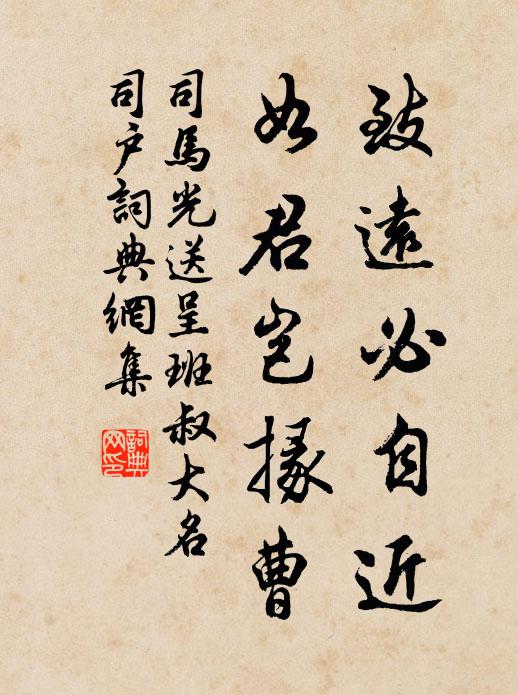 致遠必自近
如君豈掾曹
司馬光送呈班叔大名
司户詞典網集
詞典網印